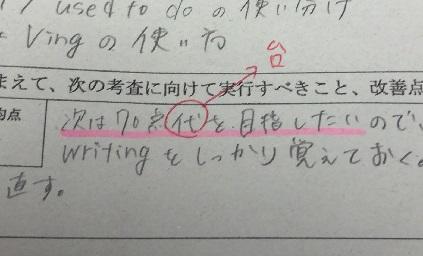 used to do の使い分け
Ving の使い方
台
まえて、次の考査に向けて実行すべきこと、改善点
均点
次は70点代を目指したいので、
writingをしっかり覚えておく。
直す。